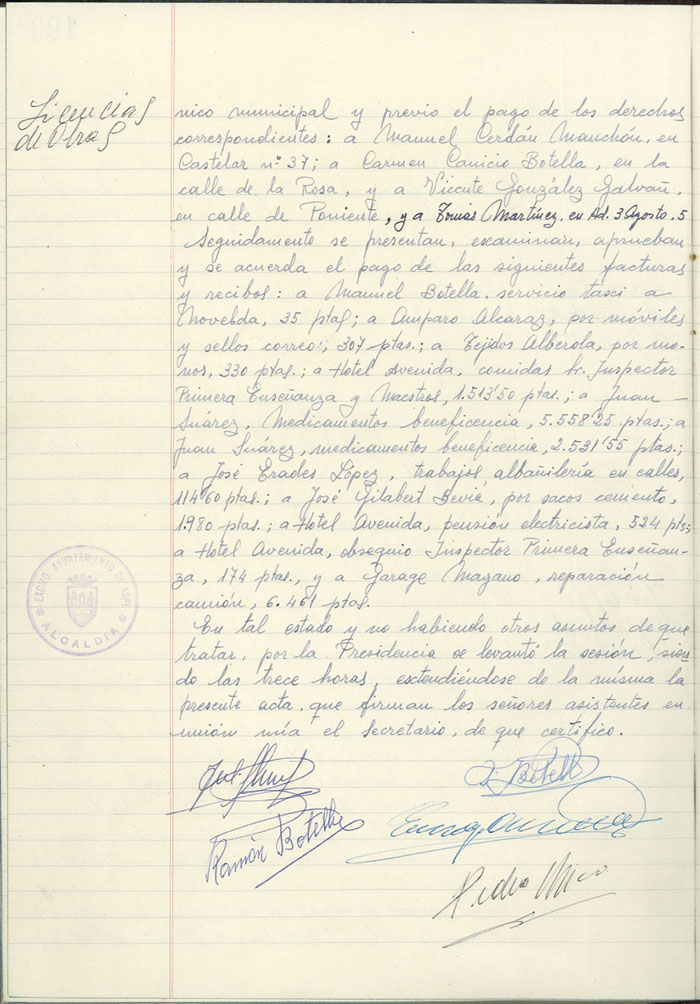 Licencias
de Obras
nico municipal y previo el pago de los derechos
correspondientes: a Manuel Cerdán Manchón, en
Castelar nº 37; a Carmen Canicio Botella, en la
calle de la Rosa, y a Vicente González Galvañ,
en calle de Poniente, y a Tomás Martínez, en Ad. 3 Agosto. 5
Seguidamente se presentan, examinan, aprueban
y se acuerda el pago de las siguientes facturas
y recibos: a Manuel Botella, servicio tasci a
Novelda, 35 ptas; a Amparo Alcaraz, por móviles
y sellos correo:, 307 ptas.; a Tejidos Alberola, por mo-
nos, 330 ptas.; a Hotel Avenida, comidas Sr. Inspector
Primera Enseñanza y Maestros, 1.513'50 ptas.; a Juan -
Suárez, Medicamentos beneficencia, 5.558'25 ptas.; a
Juan Suárez, medicamentos beneficencia, 2.531'55 ptas.;
a José Erades López, trabajos albañilería en calles,
114'60 ptas.; a José Gilabert Beviá, por sacos cemento,
1.980 ptas.; a Hotel Avenida, pensión electricista, 524 pts;
a Hotel Avenida, obsequio Inspector Primera Enseñan-
za, 174 ptas., y a Garage Mazano, reparación
camión, 6.461 ptas.
En tal estado y no habiendo otros asuntos de que
tratar, por la Presidencia se levantó la sesión, sien-
do las trece horas, extendiéndose de la misma la
presente acta, que firman los señores asistentes en
unión mía el Secretario, de que certifico.
EXCMO. AYUNTAMIENTO DE ASPE
ALCALDIA
Botella
Ramón Botella
Pedro Mico